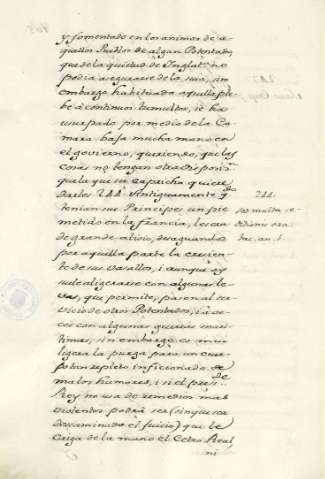 y fomentado en los animos de a
quellos Pueblos de algun Potentado,
que de la quietud de Inglatra no
podia asegurarse de la suia, sin
embargo habituada aquella ple
be à continuos tumultos, se ha
usurpado por medio de la Ca
mara baja mucha mano en
el govierno, queriendo, que las
cosas no tengan otra disposicn
que la que su capricho quiere
darles 244 Antiguamente qdo
tenian sus Principes un pie
metido en la Francia, les era
de grande alivio, desaguando
por aquella parte la crecien
te de sus vasallos, i aunque oy
suele aligerarse con algunas le
vas, que permite, pasen al ser
vicio de otros Potentados, i à ve
ces con algunas guerras mari
timas, sin embargo es mui
ligera la purga para un cuer
po tan repleto inficionado de
malos humores, i si el presnte
Rey no usa de remedios mas
violentos podrà ser (sin que sea
descaminado el juicio) que le
caiga de la mano el Cetro Real,
ni
244.